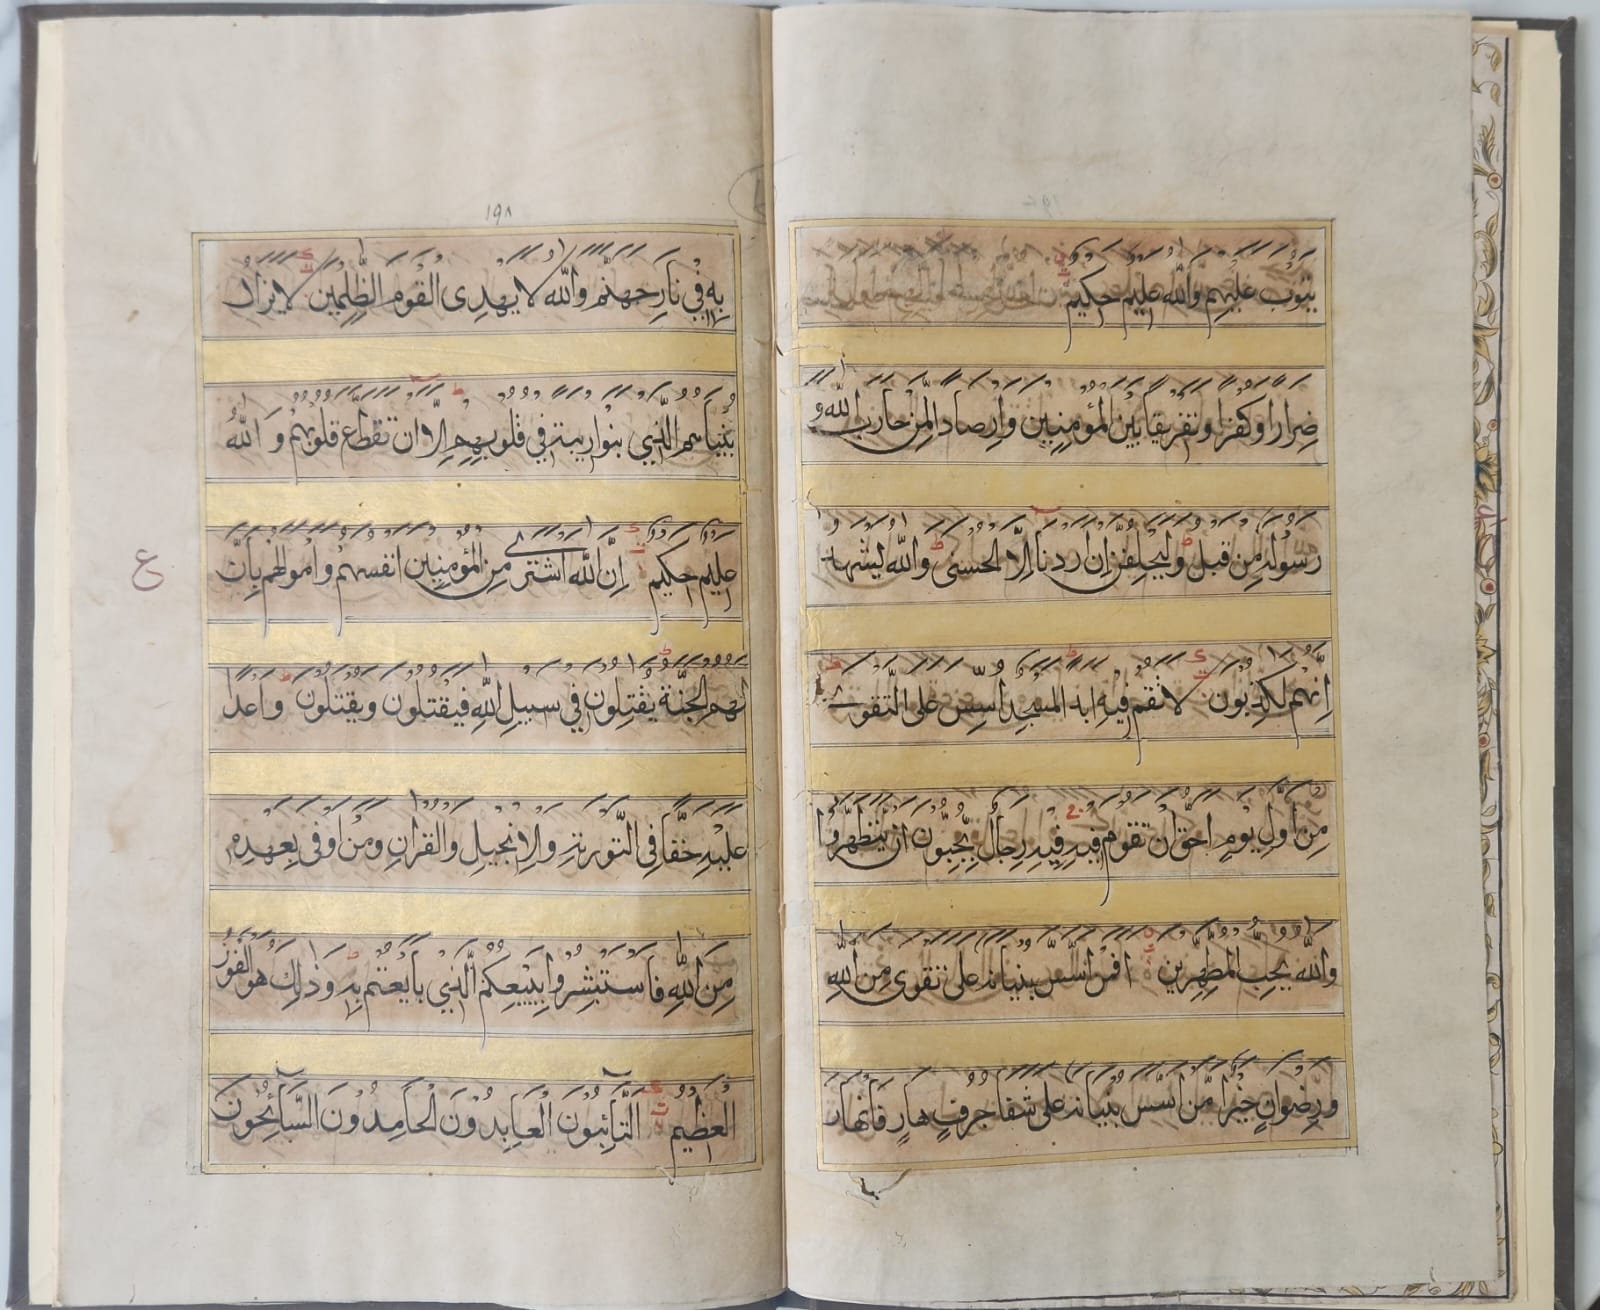 يتوب عليهم والله عليم حكيم
ضرارا وكفرا وتفريقا بين المؤمنين وارصادا لمن حارب الله و
رسوله من قبل وليحلفن ان اردنا الا الحسنى والله يشهد
انهم لكذبون لا تقم فيه ابدا لمسجد اسس على التقوى
من اول يوم احق ان تقوم فيه فيه رجال يحبون ان يتطهروا
والله يحب المطهرين افمن اسس بنيانه على تقوى من الله
ورضوان خير امن اسس بنيانه على شفا جرف هار فانهار
١٩٨
به في نار جهنم والله لا يهدى القوم الظلمين لا يزال
بنيانهم الذي بنوا ريبة في قلوبهم الا ان تقطع قلوبهم والله
عليم حكيم ان الله اشترى من المؤمنين انفسهم وامولهم بان
لهم الجنة يقتلون في سبيل الله فيقتلون ويقتلون وعدا
عليه حقا في التورىة والانجيل والقران ومن اوفى بعهده
من الله فاستبشروا ببيعكم الذي بايعتم به وذلك هو الفوز
العظيم التائبون العابدون الحامدون السائحون
ع